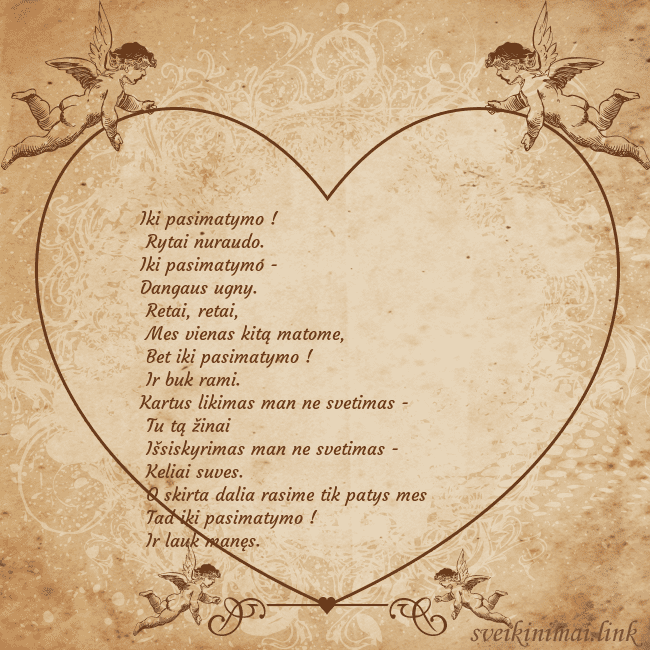 Iki pasimatymo !
Rytai nuraudo.
Iki pasimatymo -
Dangaus ugny.
Retai, retai,
Mes vienas kitą matome,
Bet iki pasimatymo !
Ir buk rami.
Kartus likimas man ne svetimas -
Tu tą žinai
Išsiskyrimas man ne svetimas -
Keliai suves.
O skirta dalia rasime tik patys mes
Tad iki pasimatymo !
Ir lauk manęs.
sveikinimai.link